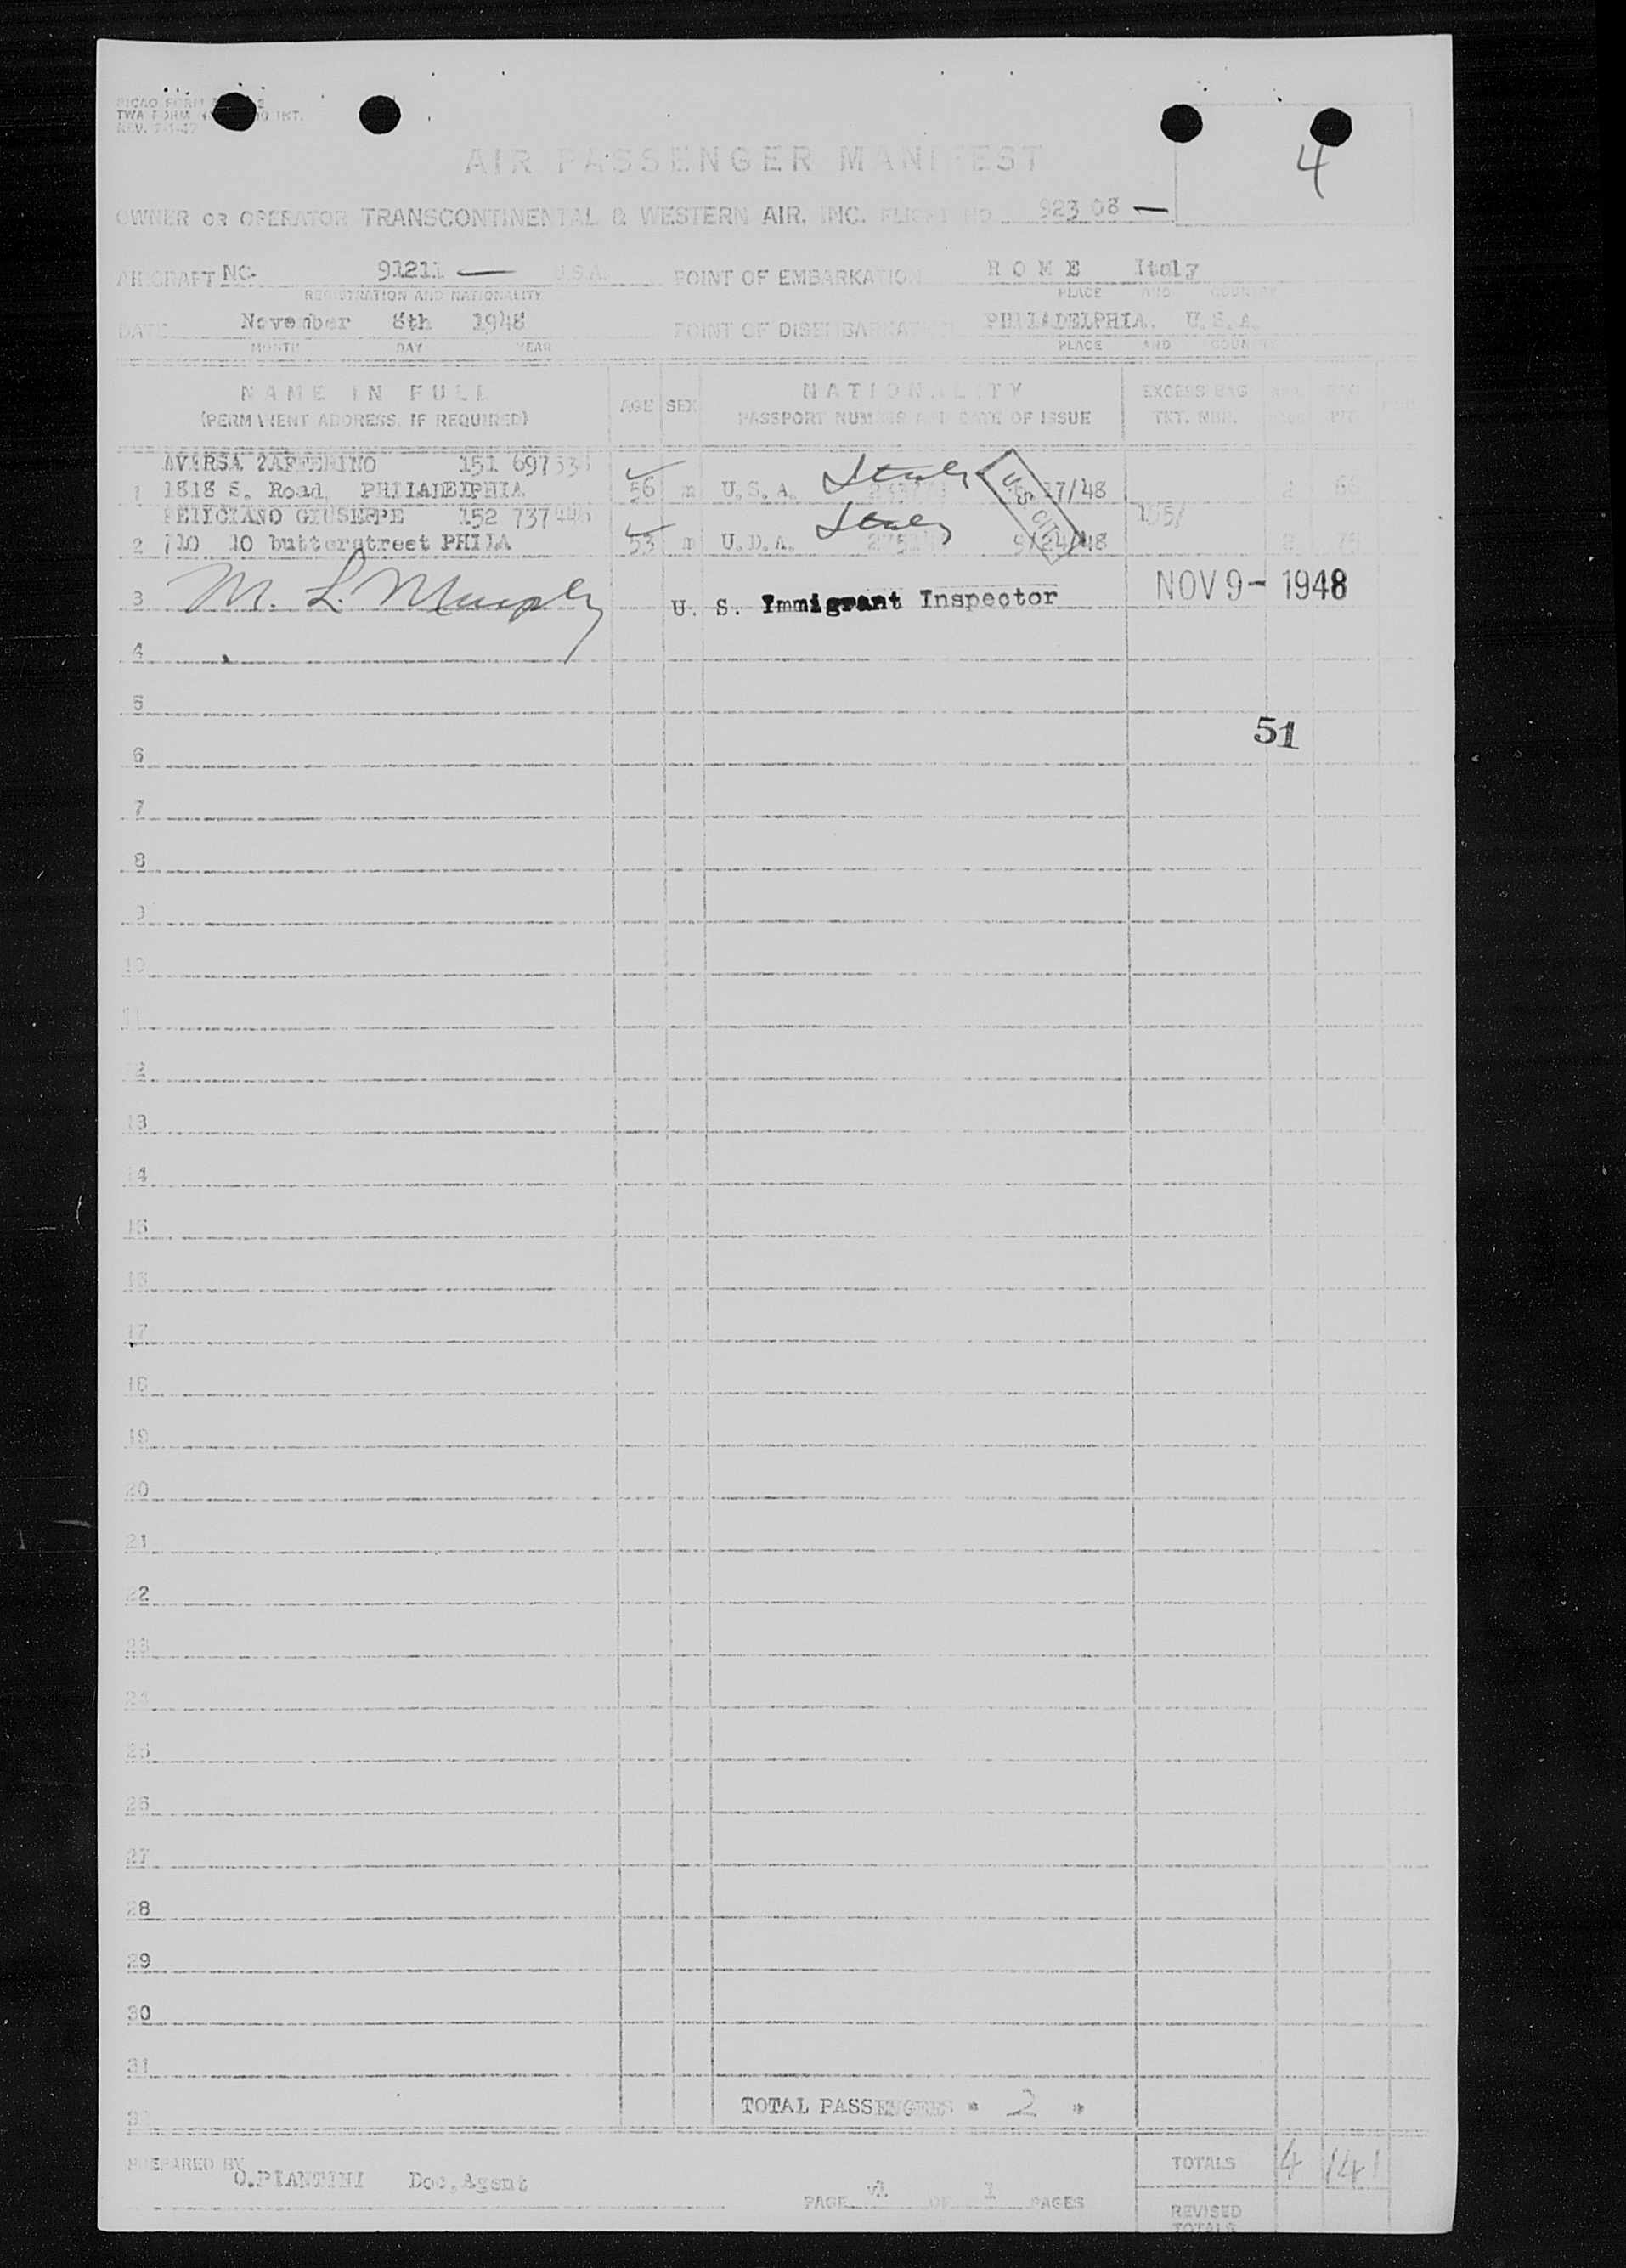 PICAO FORM
TWA FORM INT.
REV.
4
AIR PASSENGER MANIFEST
OWNER OR OPERATOR TRANSCONTINENTAL & WESTERN AIR, INC. FLIGHT NO 923 08 —
AIRCRAFT NC. 91211 — U.S.A. POINT OF EMBARKATION R O M E Italy
REGISTRATION AND NATIONALITY PLACE AND COUNTRY
DATE November 8th 1948 POINT OF DISEMBARKATION PHILADELPHIA. U.S.A.
MONTH DAY YEAR PLACE AND COUNTRY
NAME IN FULL AGE SEX NATIONALITY EXCESS BAG
(PERMANENT ADDRESS, IF REQUIRED) PASSPORT NUMBER AND DATE OF ISSUE TKT. NBR.
AVERSA ZAFFERINO 151 697
1 1818 S. Road, PHILADELPHIA 56 m U.S.A. Italy 7/48 2
U S CIT
FELICIANO GIUSEPPE 152 737
2 710 10 butterstreet PHILA 53 m U.D.A. Italy 9/24/48 2
3 M. L. Murphy U. S. Immigrant Inspector NOV 9- 1948
4
5
51
6
7
8
9
10
11
12
13
14
15
16
17
18
19
20
21
22
23
24
25
26
27
28
29
30
31
32 TOTAL PASSENGERS * 2 *
PREPARED BY O.PIANTINI Doc.Agent TOTALS 4 141
PAGE OF 1 PAGES
REVISED
TOTALS